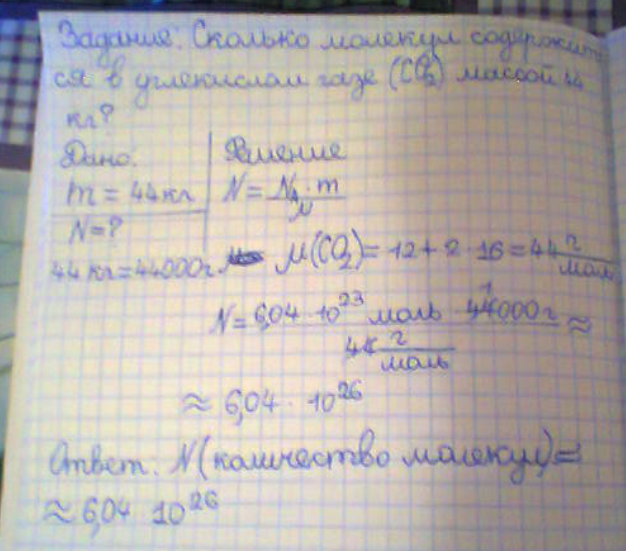 Задание: Сколько молекул содержит
ся в углекислом газе (CO₂) массой 44
кг?
Дано:
Решение
m = 44 кг
N = N_A · m / μ
N = ?
44 кг = 44000 г
μ(CO₂) = 12 + 2 · 16 = 44 г/моль
N = 6,04 · 10²³ моль · 44000 г / 44 г/моль ≈
≈ 6,04 · 10²⁶
Ответ: N (количество молекул) =
≈ 6,04 10²⁶